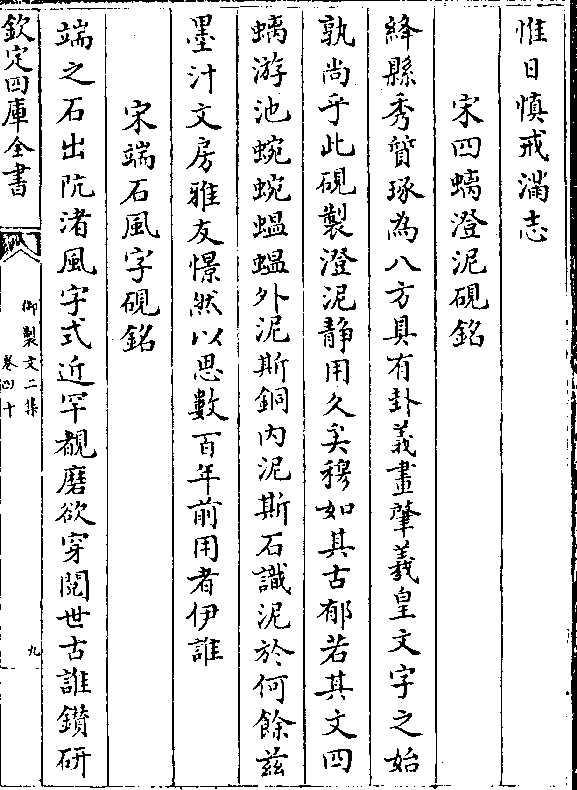 惟日慎戒滿志
宋四螭澄泥硯銘
絳縣秀質琢為八方具有卦義畫肇羲皇文字之始
孰尚乎此硯製澄泥静用久矣穆如其古郁若其文四
螭游池蜿蜿蝹蝹外泥斯銅内泥斯石識泥於何餘兹
墨汁文房雅友憬然以思數百年前用者伊誰
宋端石風字硯銘
端之石出阬渚風字式近罕覩磨欲穿閱世古誰鑚研
欽定四庫全書
御製文二集
卷四十
九